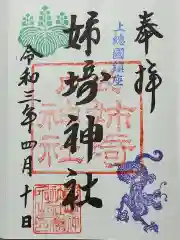 奉拝
上總國鎮座
姉埼神社
姉埼神社
令和三年四月十日